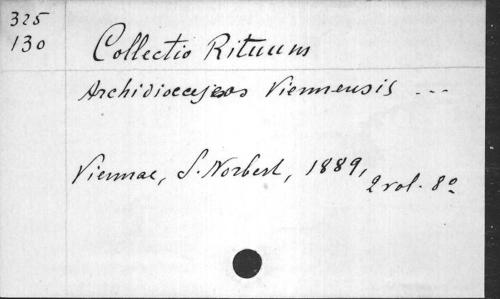 325
130
Collectio Rituum
Archidioeceseos Viennensis ...
Viennae, S. Norbert, 1889,
2 vol. 8º